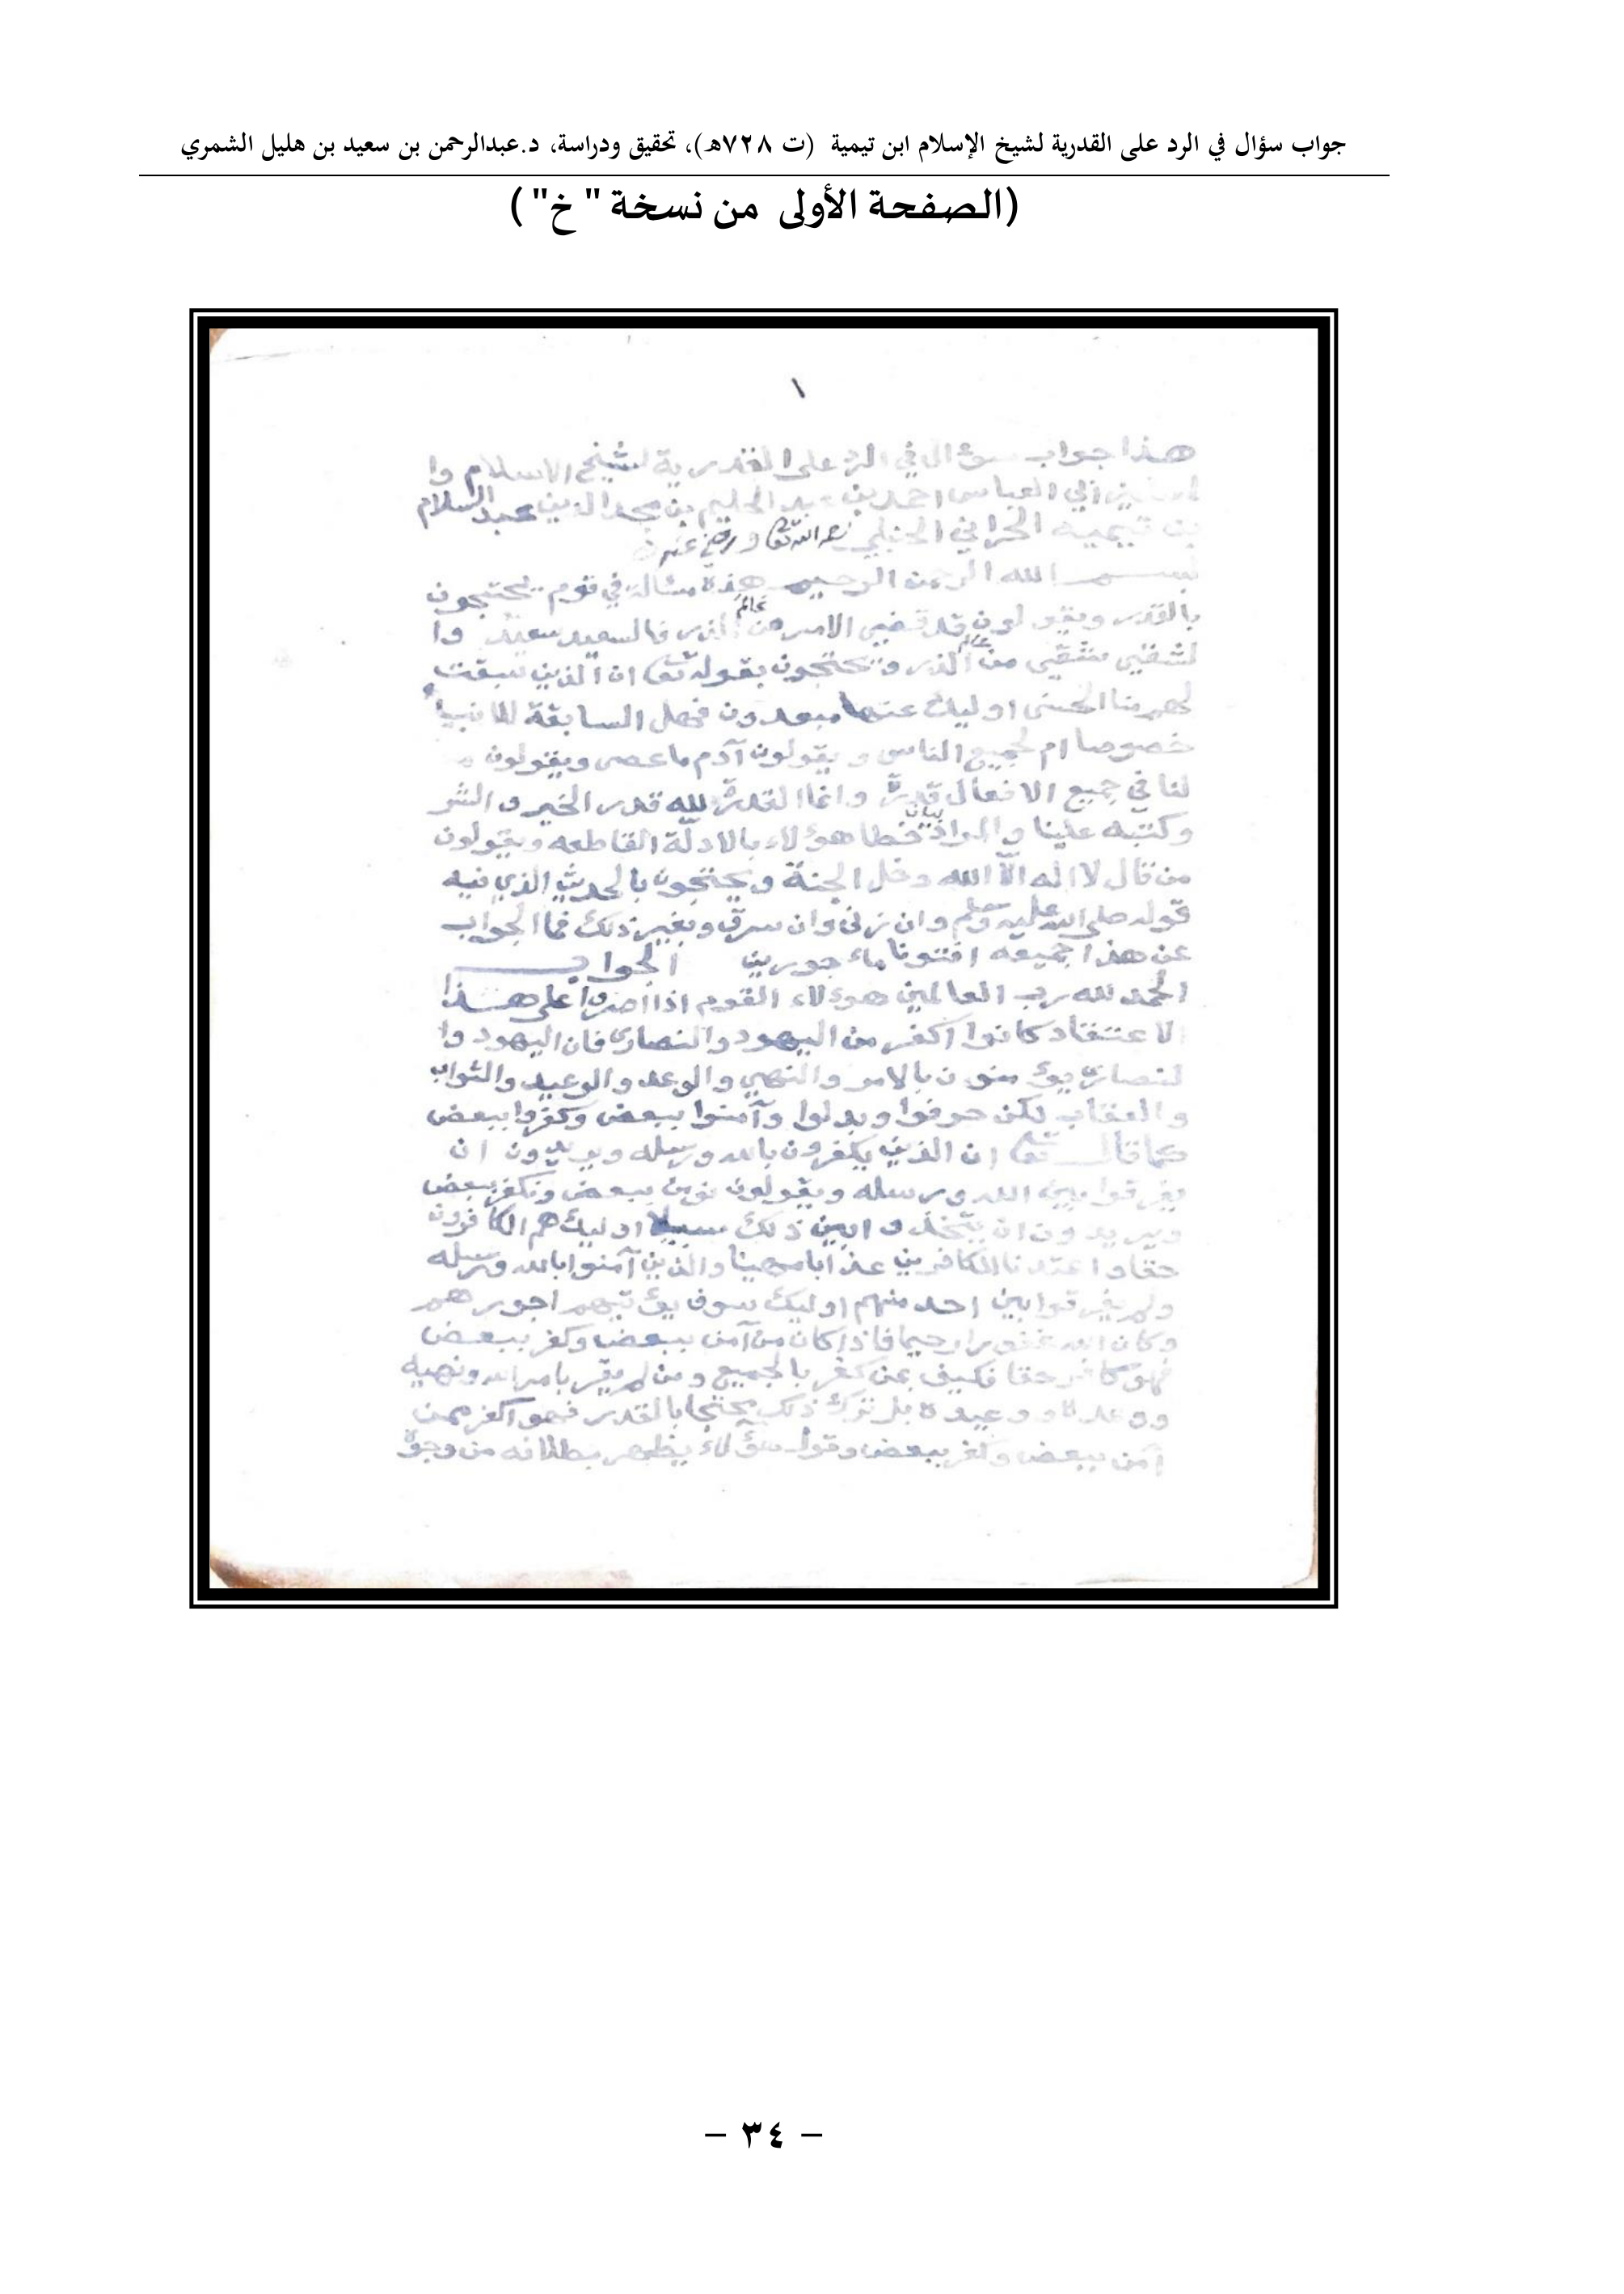 جواب سؤال في الرد على القدرية لشيخ الإسلام ابن تيمية (ت ٧٢٨هـ)، تحقيق ودراسة، د.عبدالرحمن بن سعيد بن هليل الشمري
(الصفحة الأولى من نسخة " خ" )
١
هذا جواب سؤال في الرد على القدرية لشيخ الاسلام وا
ابي العباس احمد بن عبد الحليم بن مجد الدين عبد السلام
بن تيميه الحراني الحنبلي رحمه الله تعا ورضي عنه
بسم الله الرحمن الرحيم هذه مسالة في قوم يحتجون
بالقدر ويقولون قد قضي الامر من عالم الذر فالسعيد سعيد وا
لشقي شقي من عالم الذر ويحتجون بقوله تعا ان الذين سبقت
لهم منا الحسنى اوليك عنها مبعدون فهل السابقة للانبيا
خصوصا ام لجميع الناس ويقولون آدم ما عصى ويقولون ما
لنا في جميع الافعال قدرة وانما القدرة لله قدر الخير والشر
وكتبه علينا والمراد بيان خطا هؤلاء بالادلة القاطعه ويقولون
من قال لا اله الا الله دخل الجنة ويحتجون بالحديث الذي فيه
قوله صلى الله عليه وسلم وان زنى وان سرق وبغير ذلك فما الجواب
عن هذا جميعه افتونا ماءجورين الجواب
الحمد لله رب العالمين هوءلاء القوم اذا اصروا على هذا
الاعتقاد كانوا اكفر من اليهود والنصارى فان اليهود وا
لنصارى يؤمنون بالامر والنهي والوعد والوعيد والثواب
والعقاب لكن حرفوا وبدلوا وآمنوا ببعض وكفروا ببعض
كما قال تعا ان الذين يكفرون بالله ورسله ويريدون ان
يفرقوا بين الله ورسله ويقولون نومن ببعض ونكفر ببعض
ويريدون ان يتخذوا بين ذلك سبيلا اوليك هم الكافرون
حقا واعتدنا للكافرين عذابا مهينا والذين آمنوا بالله ورسله
ولم يفرقوا بين احد منهم اوليك سوف يؤتيهم اجورهم
وكان الله غفورا رحيما فاذا كان من آمن ببعض وكفر ببعض
فهو كافر حقا فكيف بمن كفر بالجميع ومن لم يقر بامر الله ونهيه
ووعده ووعيده بل ترك ذلك محتجا بالقدر فهو اكفر ممن
آمن ببعض وكفر ببعض وقول هؤلاء يظهر بطلانه من وجوه
– ٣٤ –